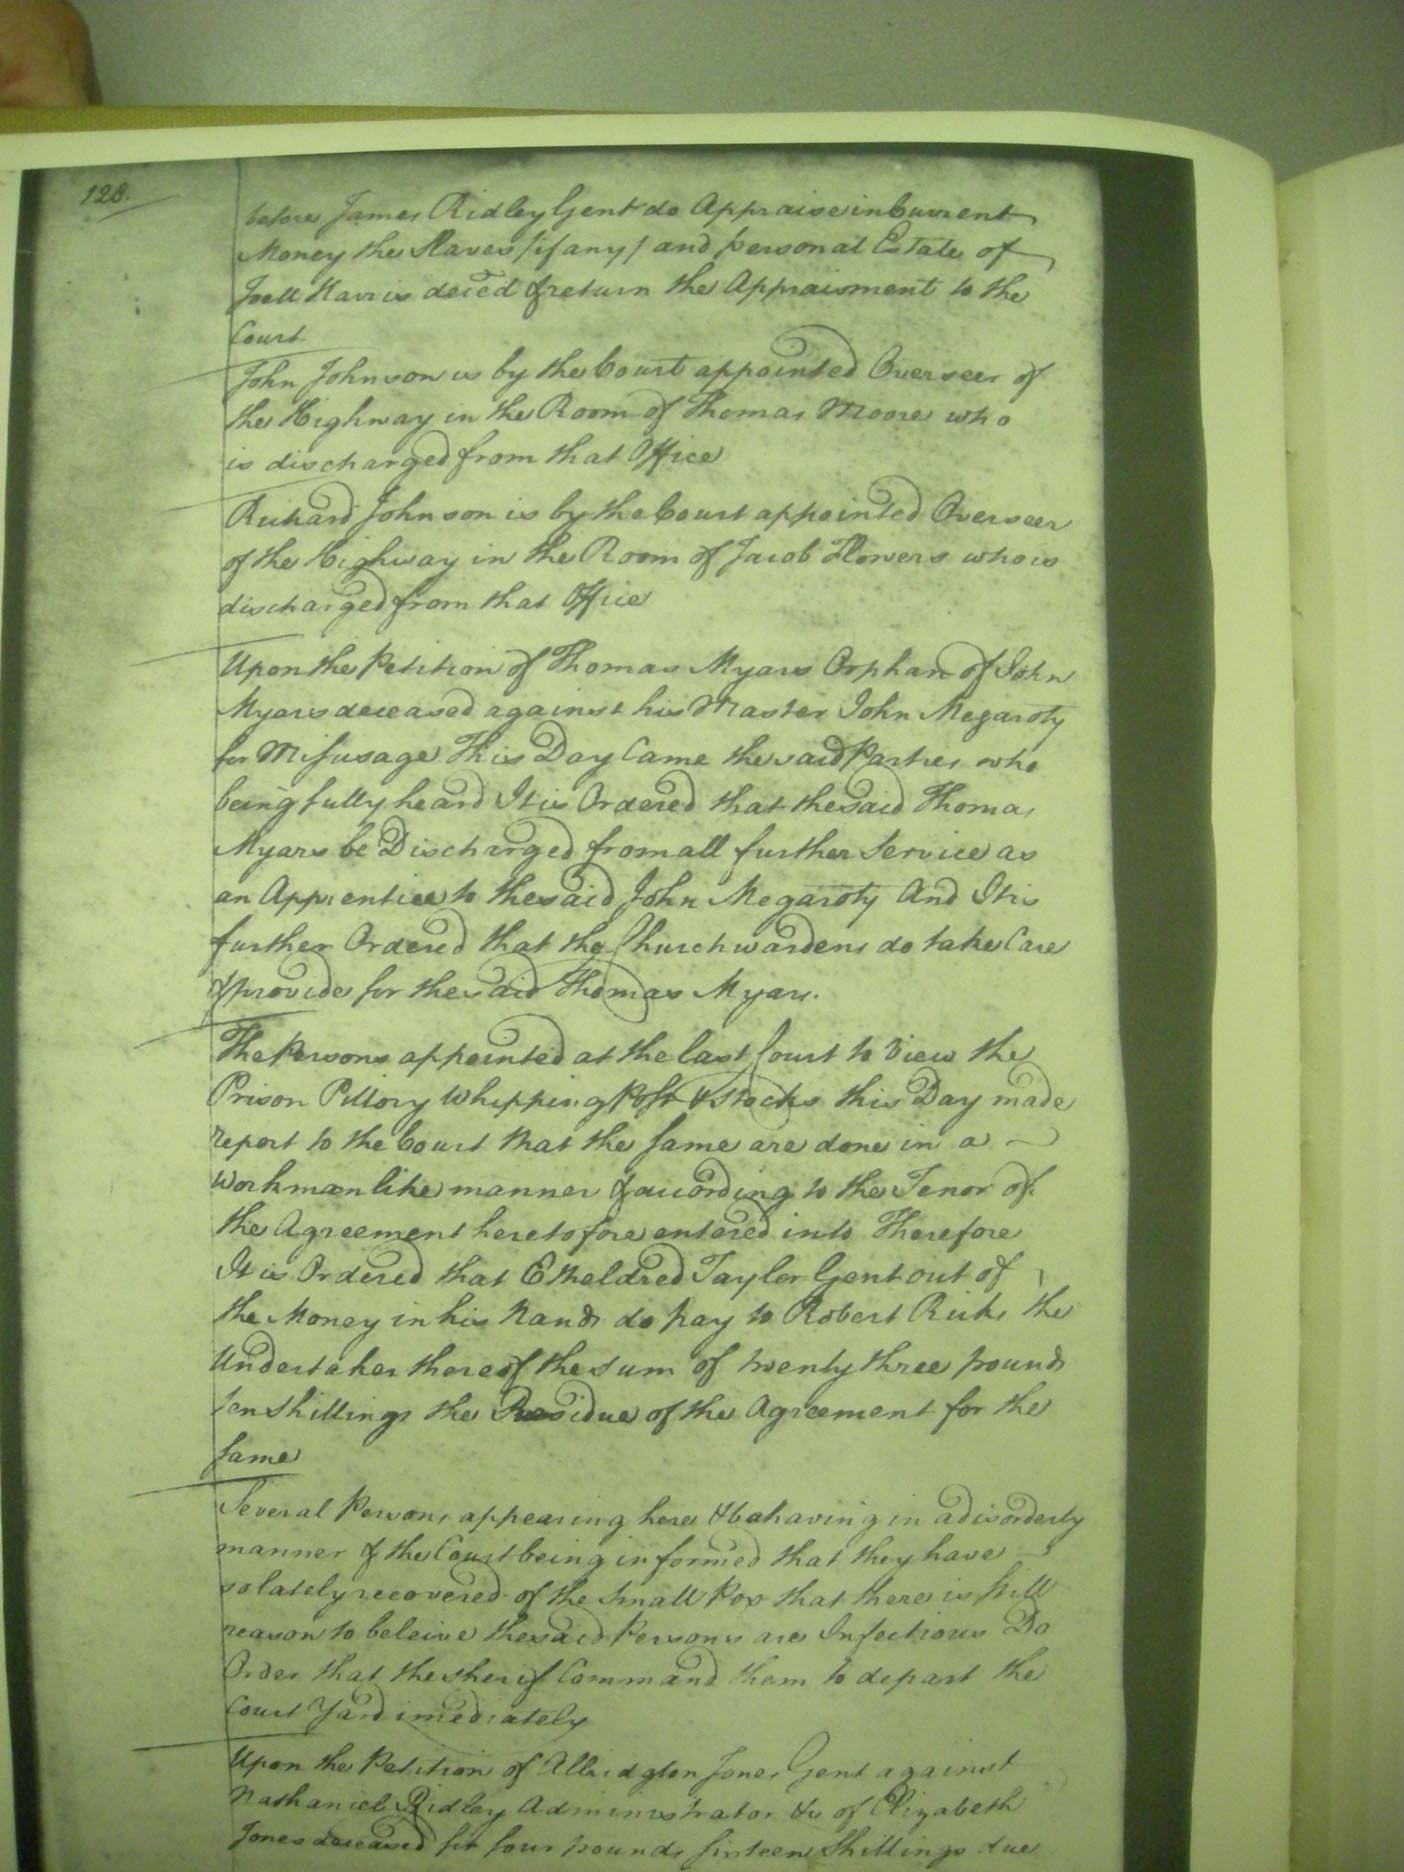 128.
before James Ridley Gent do Appraise in Current
Money the Slaves /if any/ and personal Estate of
Joell Harris deced & return the Appraisment to the
Court
John Johnson is by the Court appointed Overseer of
the Highway in the Room of Thomas Moore who
is discharged from that Office
Richard Johnson is by the Court appointed Overseer
of the Highway in the Room of Jacob Flowers who is
discharged from that Office
Upon the Petition of Thomas Myars Orphan of John
Myars deceased against his Master John Megaroty
for Misusage This Day Came the said Parties who
being fully heard It is Ordered that the said Thomas
Myars be Discharged from all further Service as
an Apprentice to the said John Megaroty And It is
further Ordered that the Churchwardens do take Care
& provide for the said Thomas Myars.
The Persons appointed at the last Court to View the
Prison Pillory Whipping Post & Stocks this Day made
report to the Court that the same are done in a
Workmanlike manner & according to the Tenor of
the Agreement heretofore entered into Therefore
It is Ordered that Etheldred Taylor Gent out of
the Money in his Hands do pay to Robert Ricks the
Undertaker thereof the sum of twenty three pounds
ten shillings the Residue of the Agreement for the
same
Several Persons appearing here & behaving in a disorderly
manner & the Court being informed that they have
so lately recovered of the Small Pox that there is still
reason to beleive the said Persons are Infectious Do
Order that the Sherif Command them to depart the
Court Yard imediately
Upon the Petition of Albridgton Jones Gent against
Nathaniel Ridley Administrator &c of Elizabeth
Jones deceased for four pounds sixteen Shillings due